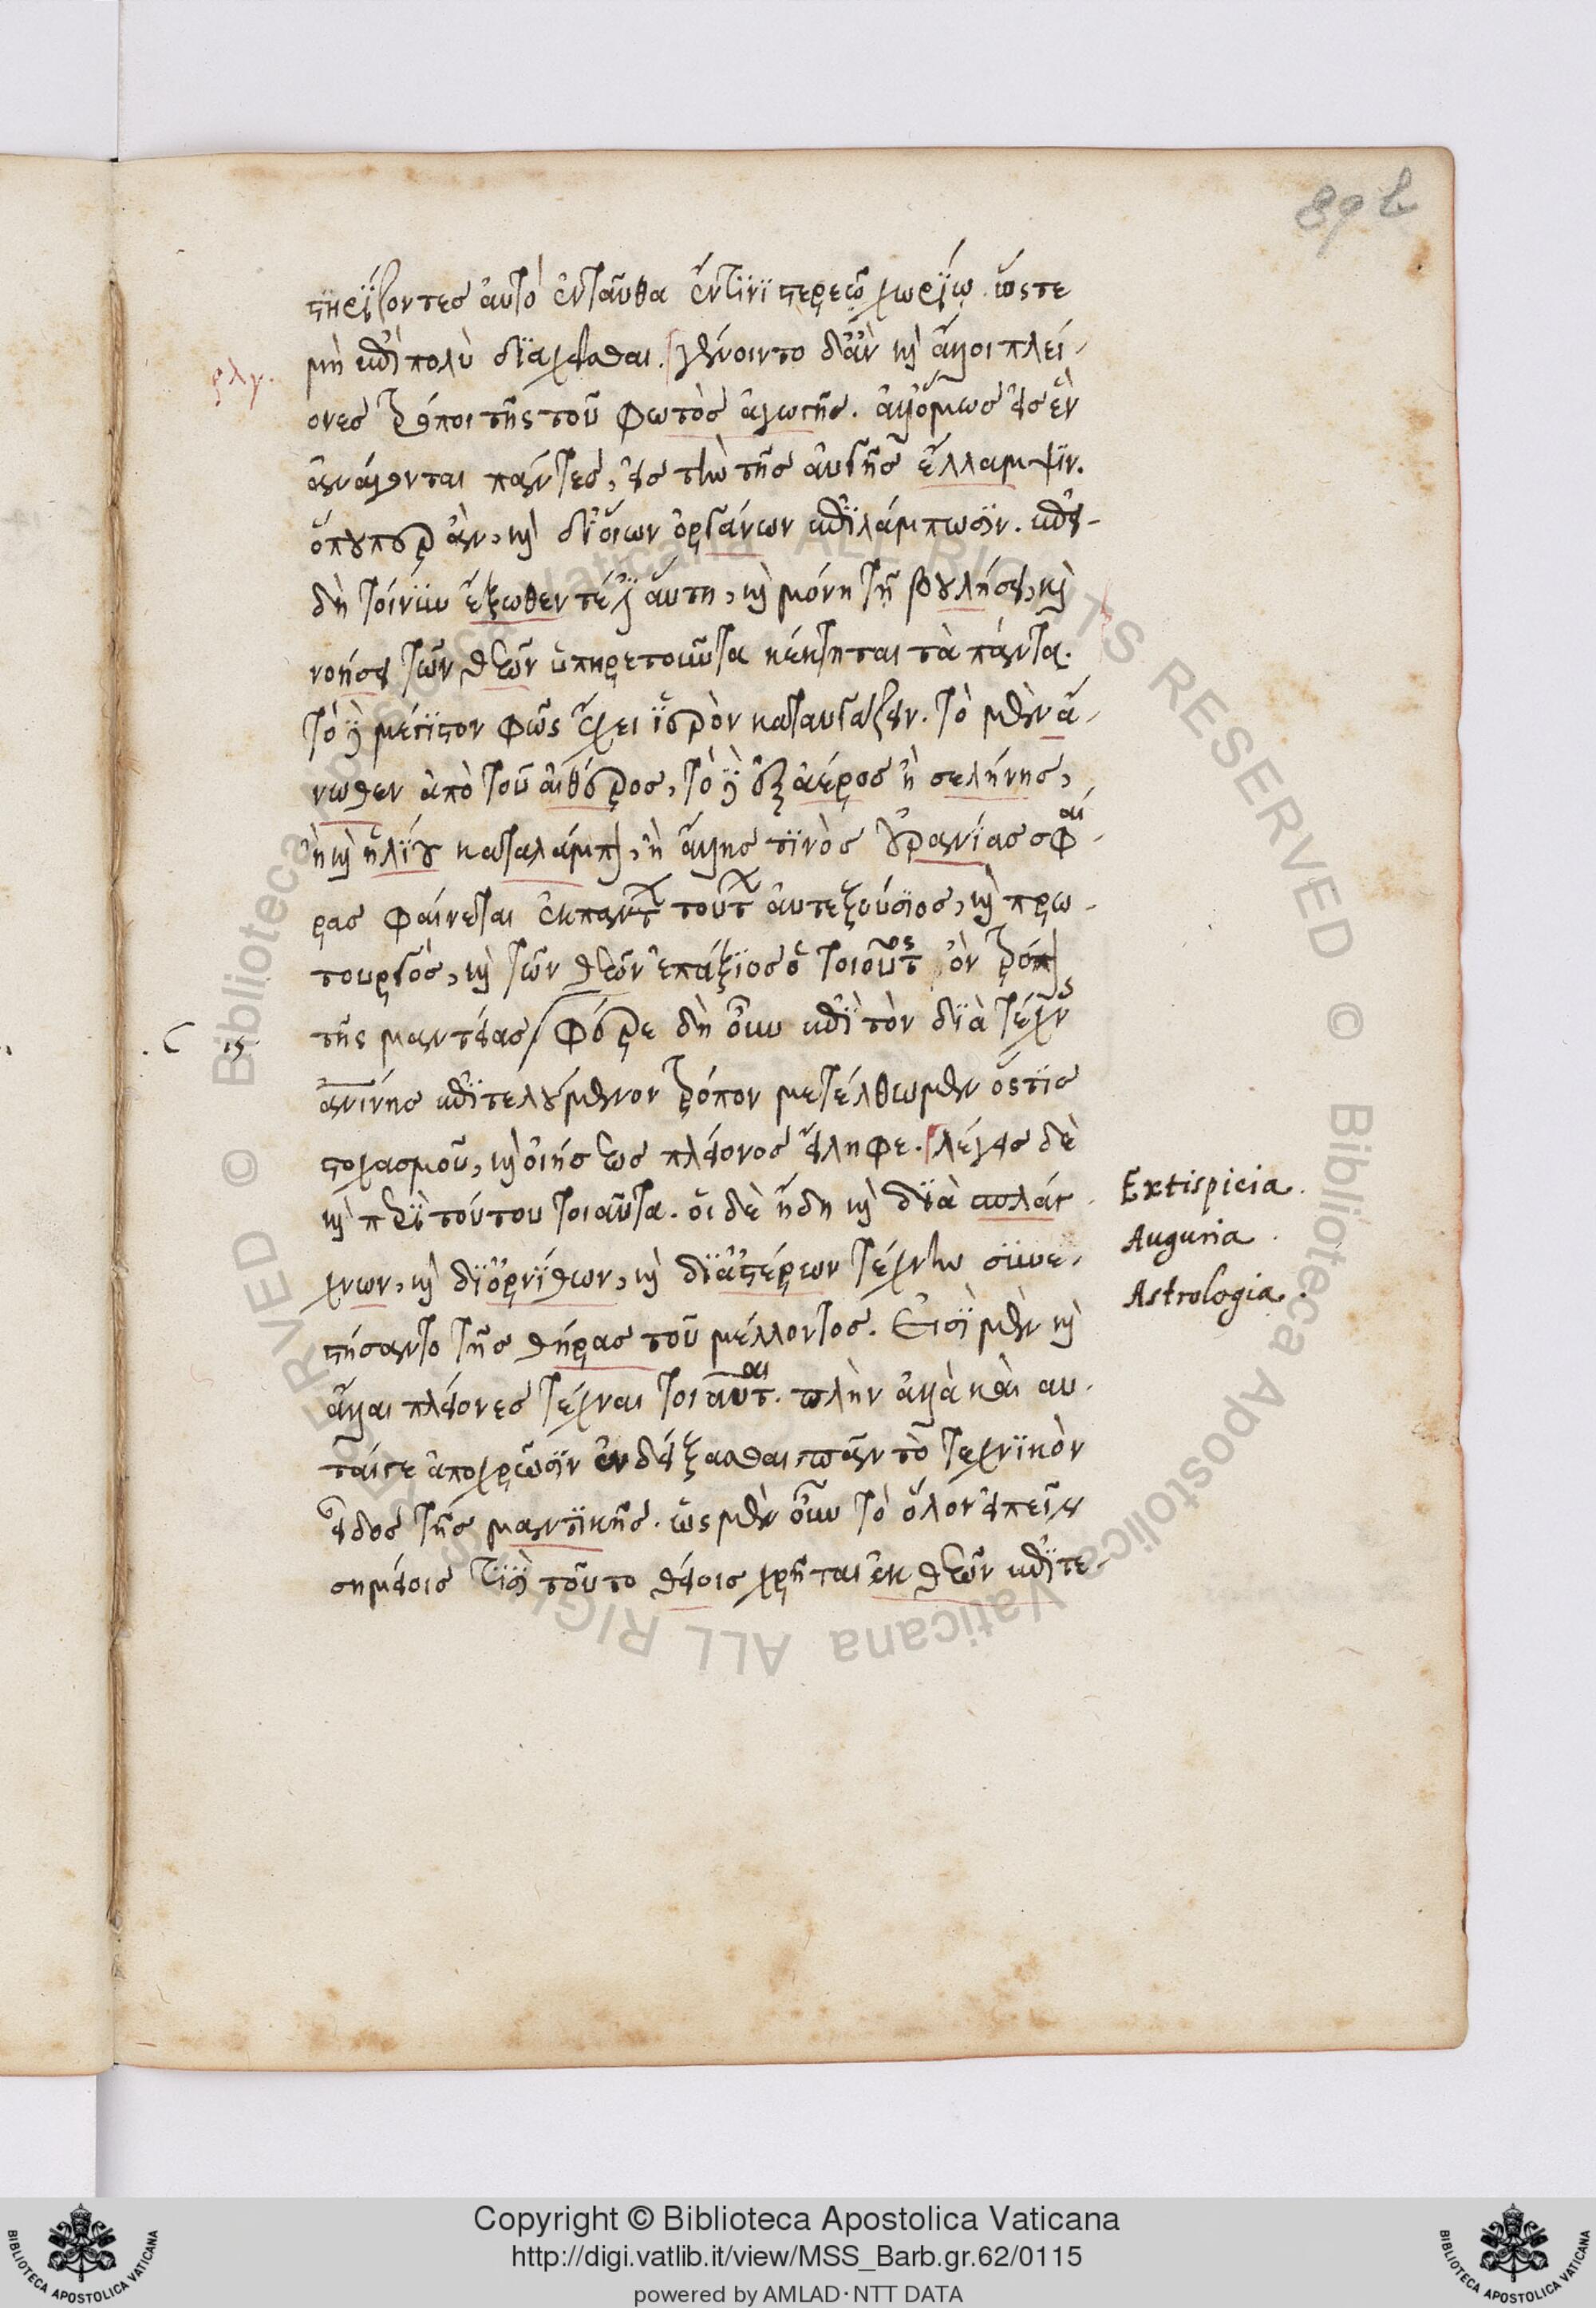 89 b
στηρίζοντες αὐτὸ ἐνταῦθα ἔν τινι στερεῷ χωρίῳ. ὥστε
μὴ ἐπὶ πολὺ διαχεῖσθαι. γένοιντο δ' ἂν καὶ ἄλλοι πλεί-
ρλγ.
ονες τρόποι τῆς τοῦ φωτὸς ἀγωγῆς. ἀλλ' ὅμως εἰς ἓν
ἀνάγονται πάντες, εἰς τὴν τῆς αὐγῆς ἔλλαμψιν.
ὅπου περ ἂν, καὶ δι' οἵων ὀργάνων ἐπιλάμπωσιν. ἐπει-
δὴ τοίνυν ἔξωθεν τέ ἐστιν αὕτη, καὶ μόνη τῇ βουλήσει, καὶ
νοήσει τῶν θεῶν ὑπηρετοῦντα κέκτηται τὰ πάντα.
τὸ δὲ μέγιστον φῶς ἔχει ἱερὸν καταυγάζειν. τὸ μὲν ἄ-
νωθεν ἀπὸ τοῦ αἰθέρος, τὸ δὲ ἐξ ἀέρος ἢ σελήνης,
ἢ καὶ ἡλίου καταλάμπον, ἢ ἄλλης τινὸς οὐρανίας σφαί-
ρας φαίνεται ἐκ πάντων τούτων αὐτεξούσιος, καὶ πρω-
τουργὸς, καὶ τῶν θεῶν ἐπάξιος ὁ τοιοῦτος ὂν τρόπος
τῆς μαντείας Φέρε δὴ οὖν ἐπὶ τὸν διὰ τέχνης
ις
ἀνινής ἐπιτελούμενον τρόπον μετέλθωμεν ὅστις
στοχασμοῦ, καὶ οἰήσεως πλείονος εἴληφε. λέγεις δὲ
καὶ περὶ τούτου τοιαῦτα. οἱ δὲ ἤδη καὶ διὰ σπλάγ-
Extispicia.
χνων, καὶ δι' ὀρνίθων, καὶ δι' ἀστέρων τέχνην συνε-
Auguria.
Astrologia.
στήσαντο τῆς θήρας τοῦ μέλλοντος. Εἰσὶ μὲν καὶ
ἄλλαι πλείονες τέχναι τοιαῦται. πλὴν ἀλλὰ καὶ αὐ-
ταίγε ἀποχρῶσιν ἐνδείξασθαι πᾶν τὸ τεχνικὸν
εἶδος τῆς μαντικῆς. ὡς μὲν οὖν τὸ ὅλον εἰπεῖν
σημείοις τισὶ τοῦτο θείοις χρῆται ἐκ θεῶν ἐπιτε-
Copyright © Biblioteca Apostolica Vaticana
http://digi.vatlib.it/view/MSS_Barb.gr.62/0115
powered by AMLAD · NTT DATA